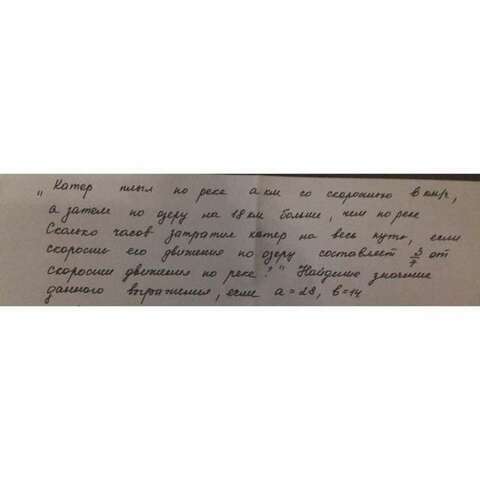 "Катер плыл по реке а км со скоростью в км/ч,
а затем по озеру на 18 км больше, чем по реке
Сколько часов затратил катер на весь путь, если
скорости его движения по озеру составляет 5/7 от
скорости движения по реке?" Найдите значение
данного выражения, если а=28, в=14